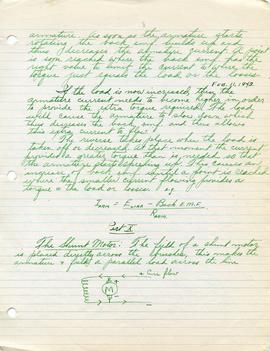 armature. As soon as the armature starts
rotating the back emf builds up and
thus decreases the armature current. A point
is soon reached where the back emf has the
right value to limit the current to where the
torque just equals the load or the losses.
Feb. 11, 1943
If the load is now increased, then the
armature current needs to become higher in order
to furnish the extra torque required. This
will cause the armature to slow down which
thus decreases the back emf and thus allows
this extra current to flow.
The reverse takes place when the load is
taken off or decreased. At that moment the current
provided a greater torque than is needed, so that
the armature starts speeding up. This causes an
increase of back emf until a point is reached
where the smaller current flowing provides a
torque = the load or losses. e.g.
I ARM = E LINE − Back E.M.F.
R ARM.
Part X
The Shunt Motor: The field of a shunt motor
is placed directly across the brushes, this makes the
armature & field a parallel load across the line
+ Cur. flow
M